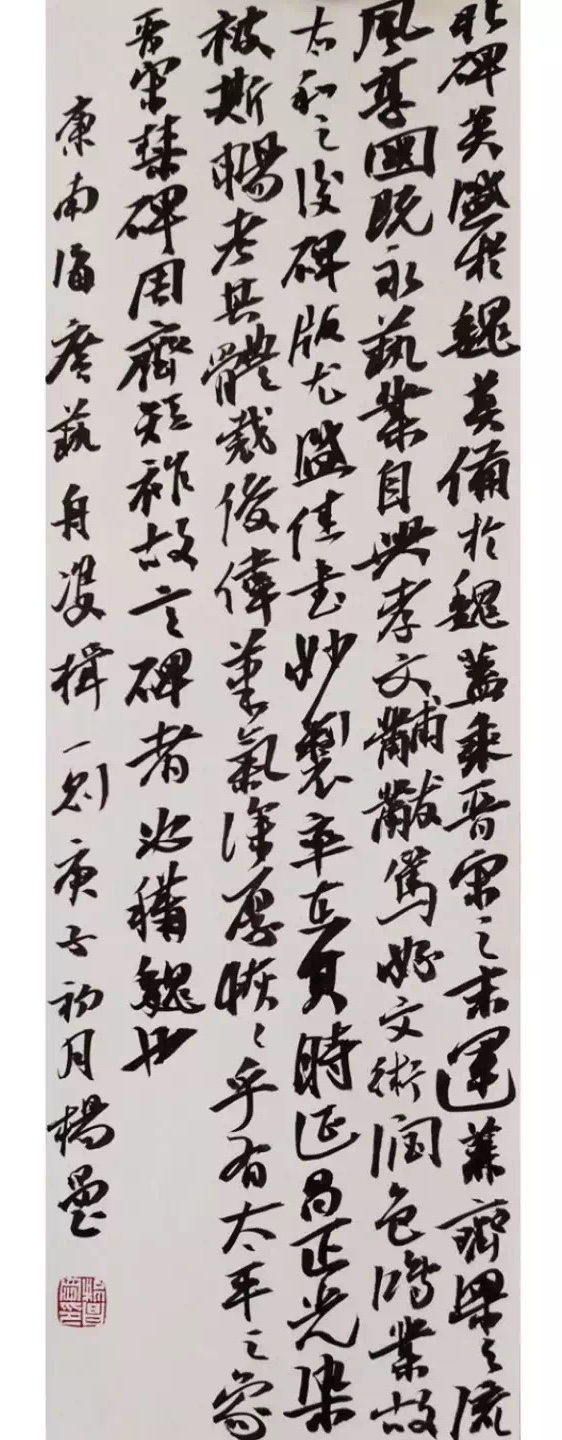 北碑莫盛於魏莫備於魏蓋乘晉宋之末運兼齊梁之流
風享國既永藝業自興孝文黼黻篤好文術潤色鴻業故
太和之後碑版尤盛佳書妙製率在其時延昌正光染
被斯暢考其體裁俊偉筆氣深厚恢〻乎有太平之象
晉宋禁碑周齊短祚故言碑者必稱魏也
康南海廣藝舟雙楫一則庚子初月楊